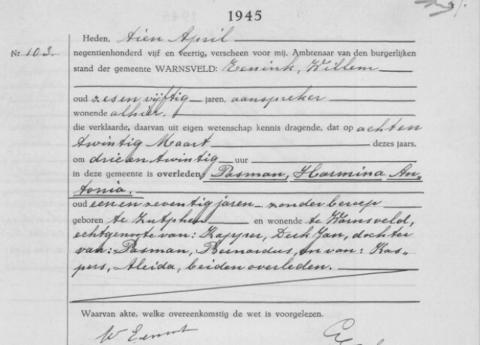 1945
Heden, tien April
Nr. 103. negentienhonderd vijf en veertig, verscheen voor mij, Ambtenaar van den burgerlijken
stand der gemeente WARNSVELD: Eenink, Willem
oud zes en vijftig jaren, aanspreker
wonende alhier.
die verklaarde, daarvan uit eigen wetenschap kennis dragende, dat op achten
twintig Maart dezes jaars,
om drie en twintig uur
in deze gemeente is overleden, Pasman, Harmina An-
tonia.
oud een en zeventig jaren zonder beroep
geboren te Zutphen en wonende te Warnsveld,
echtgenoote van: Kappers, Derk Jan, dochter
van: Pasman, Bernardus, en van: Kas-
pers, Aleida, beiden overleden.
Waarvan akte, welke overeenkomstig de wet is voorgelezen.
W Eenink